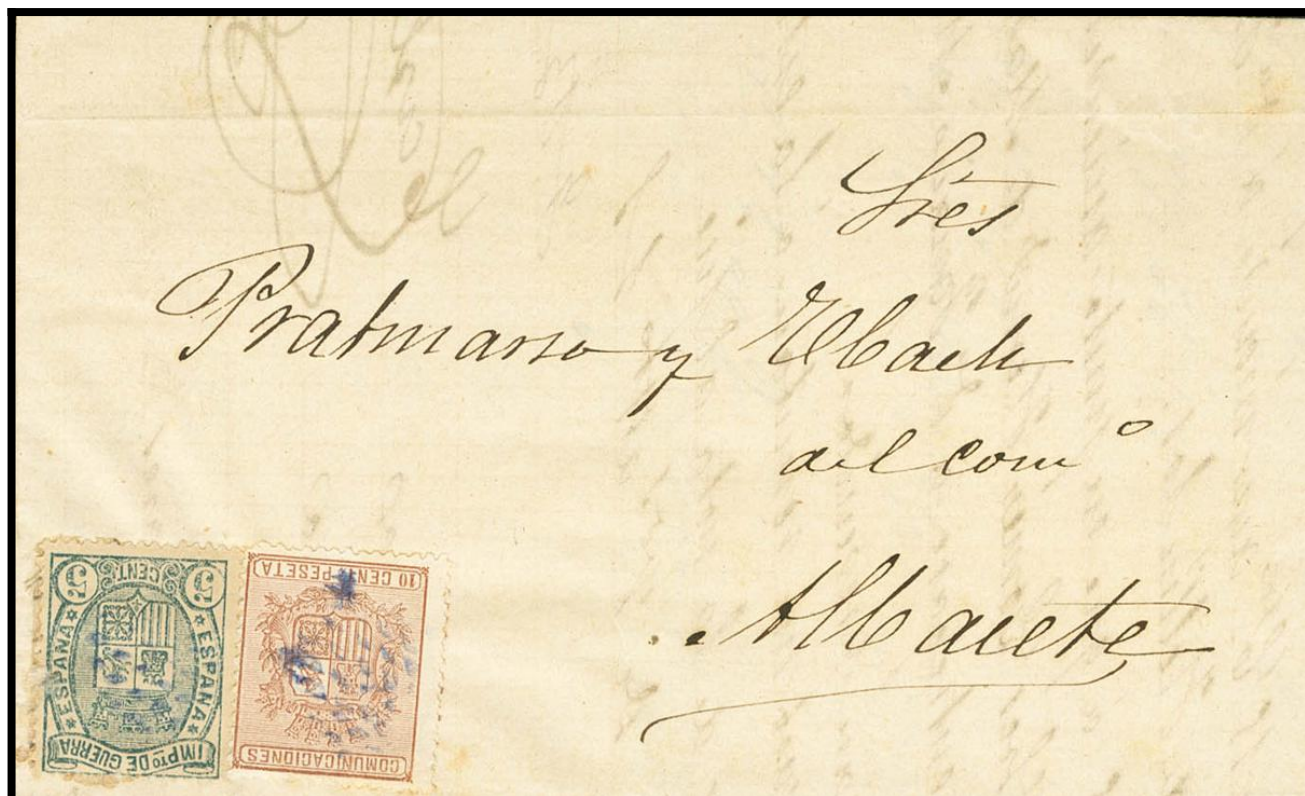 Sres
Pratmarso y
del com°
Albacete
5 5
CENTs
ESPAÑA ESPAÑA
IMPto DE GUERRA
10 CENT. PESETA
COMUNICACIONES